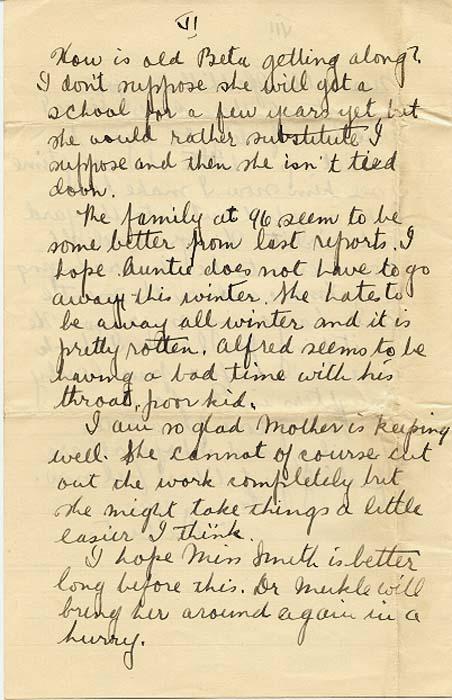 VI
How is old Beta getting along?
I don't suppose she will get a
school for a few years yet, but
she would rather substitute I
suppose and then she isn't tied
down.
The family at 96 seem to be
some better from last reports. I
hope Auntie does not have to go
away this winter. She hates to
be away all winter and it is
pretty rotten. Alfred seems to be
having a bad time with his
throat, poor kid.
I am so glad Mother is keeping
well. She cannot of course cut
out the work completely but
she might take things a little
easier I think.
I hope Miss Smith is better
long before this. Dr will
bring her around again in a
hurry.